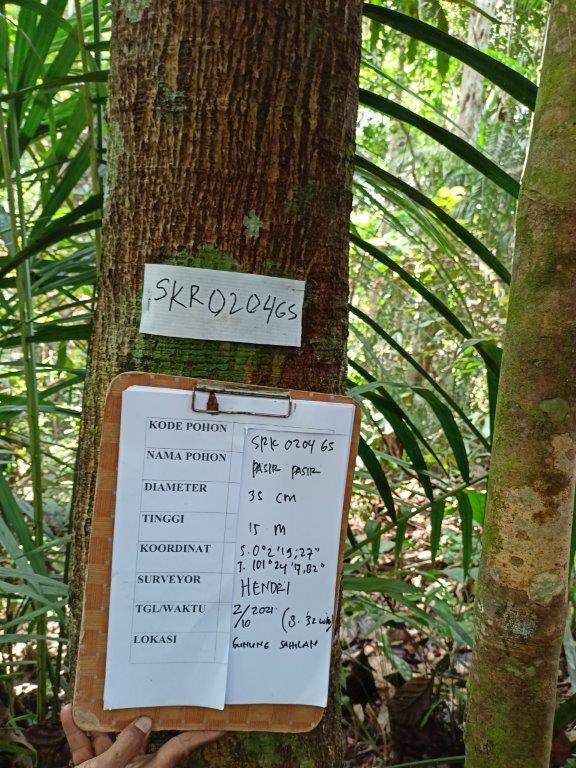 SKR0204GS
KODE POHON SRK 0204 GS
NAMA POHON PASIR PASIR
DIAMETER 35 CM
TINGGI 15 M
KOORDINAT S. 0°2'19,27"
T. 101°24'7,82"
SURVEYOR HENDRI
TGL/WAKTU 2/10 2021 (8.32 WIB)
LOKASI GUNUNG SAHILAN